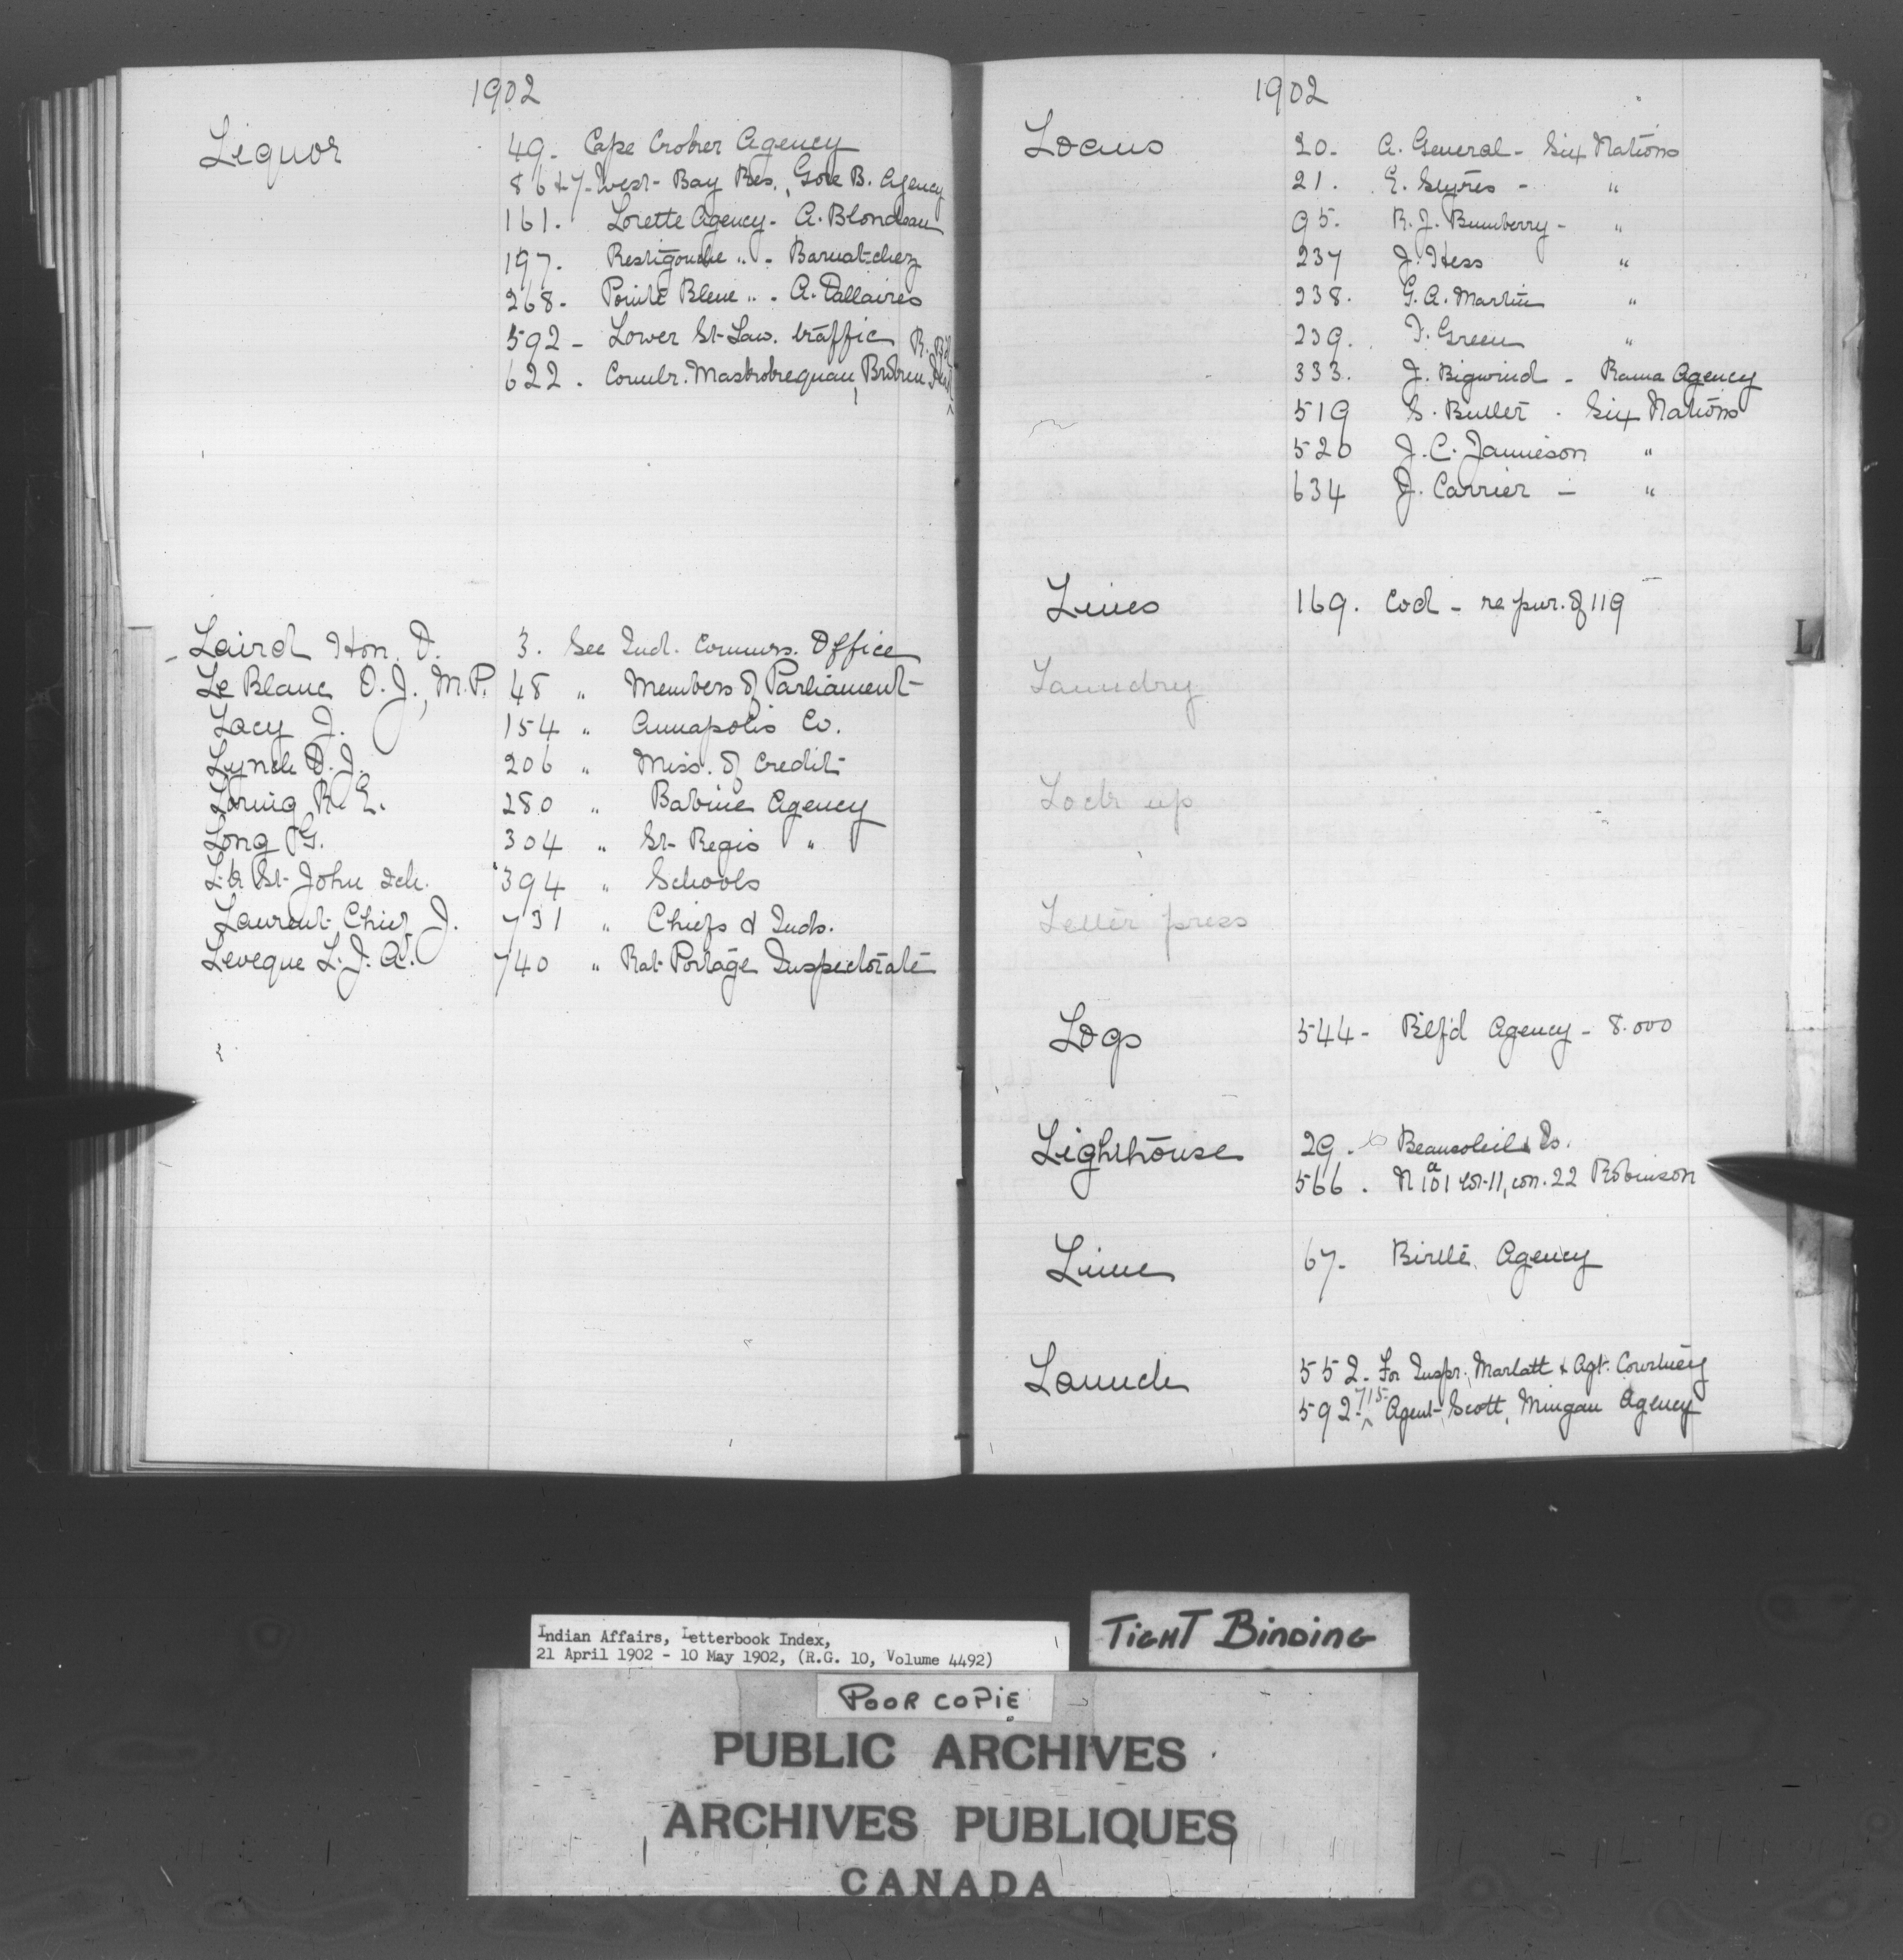 1902
Liquor 49 - Cape Croker Agency
86 & 7 - West Bay Res., Gore B. Agency
161. Lorette Agency - A. Blondeau
197. Restigouche " - Barnatchez
268 - Pointe Bleue " - A. Dallaires
592 - Lower St Law. traffic R.
622. Comlr. Broken
Laird Hon. D. 3. See Ind. Commrs. Office
Le Blanc O. J., M.P. 48 " Members of Parliament
Lacy J. 154 " Annapolis Co.
Lynch D. J. 206 " Miss. of Credit
Loring R. E. 280 " Babine Agency
Long G. 304 " St Regis "
L. St John sch. 394 " Schools
Laurent Chief J. 731 " Chiefs & Inds.
Leveque L. J. A. 740 " Rat Portage Inspectorate
1902
Loans 20 - A. General - Six Nations
21. E. Styres - "
95. R. J. Bumberry - "
237 J. Hess "
238. G. A. Martin "
239. I. Green "
333. J. Bigwind - Rama Agency
519 S. Butler - Six Nations
520 J. C. Jamieson "
634 J. Carrier - "
Lines 169. Cod - re pur. of 119
Laundry
Lock up
Letter press
Logs 544 - Blf'd Agency - 8.000
Lighthouse 29. Beausoleil Is.
566. N a 101 lot 11, con. 22 Robinson
Lime 67 - Birtle Agency
Launch 552 - For Inspr. Marlatt & Agt. Courtney
592 - 715 Agent Scott, Mingan Agency
L
Indian Affairs, Letterbook Index,
21 April 1902 - 10 May 1902, (R.G. 10, Volume 4492)
TIGHT BINDING
POOR COPIE
PUBLIC ARCHIVES
ARCHIVES PUBLIQUES
CANADA